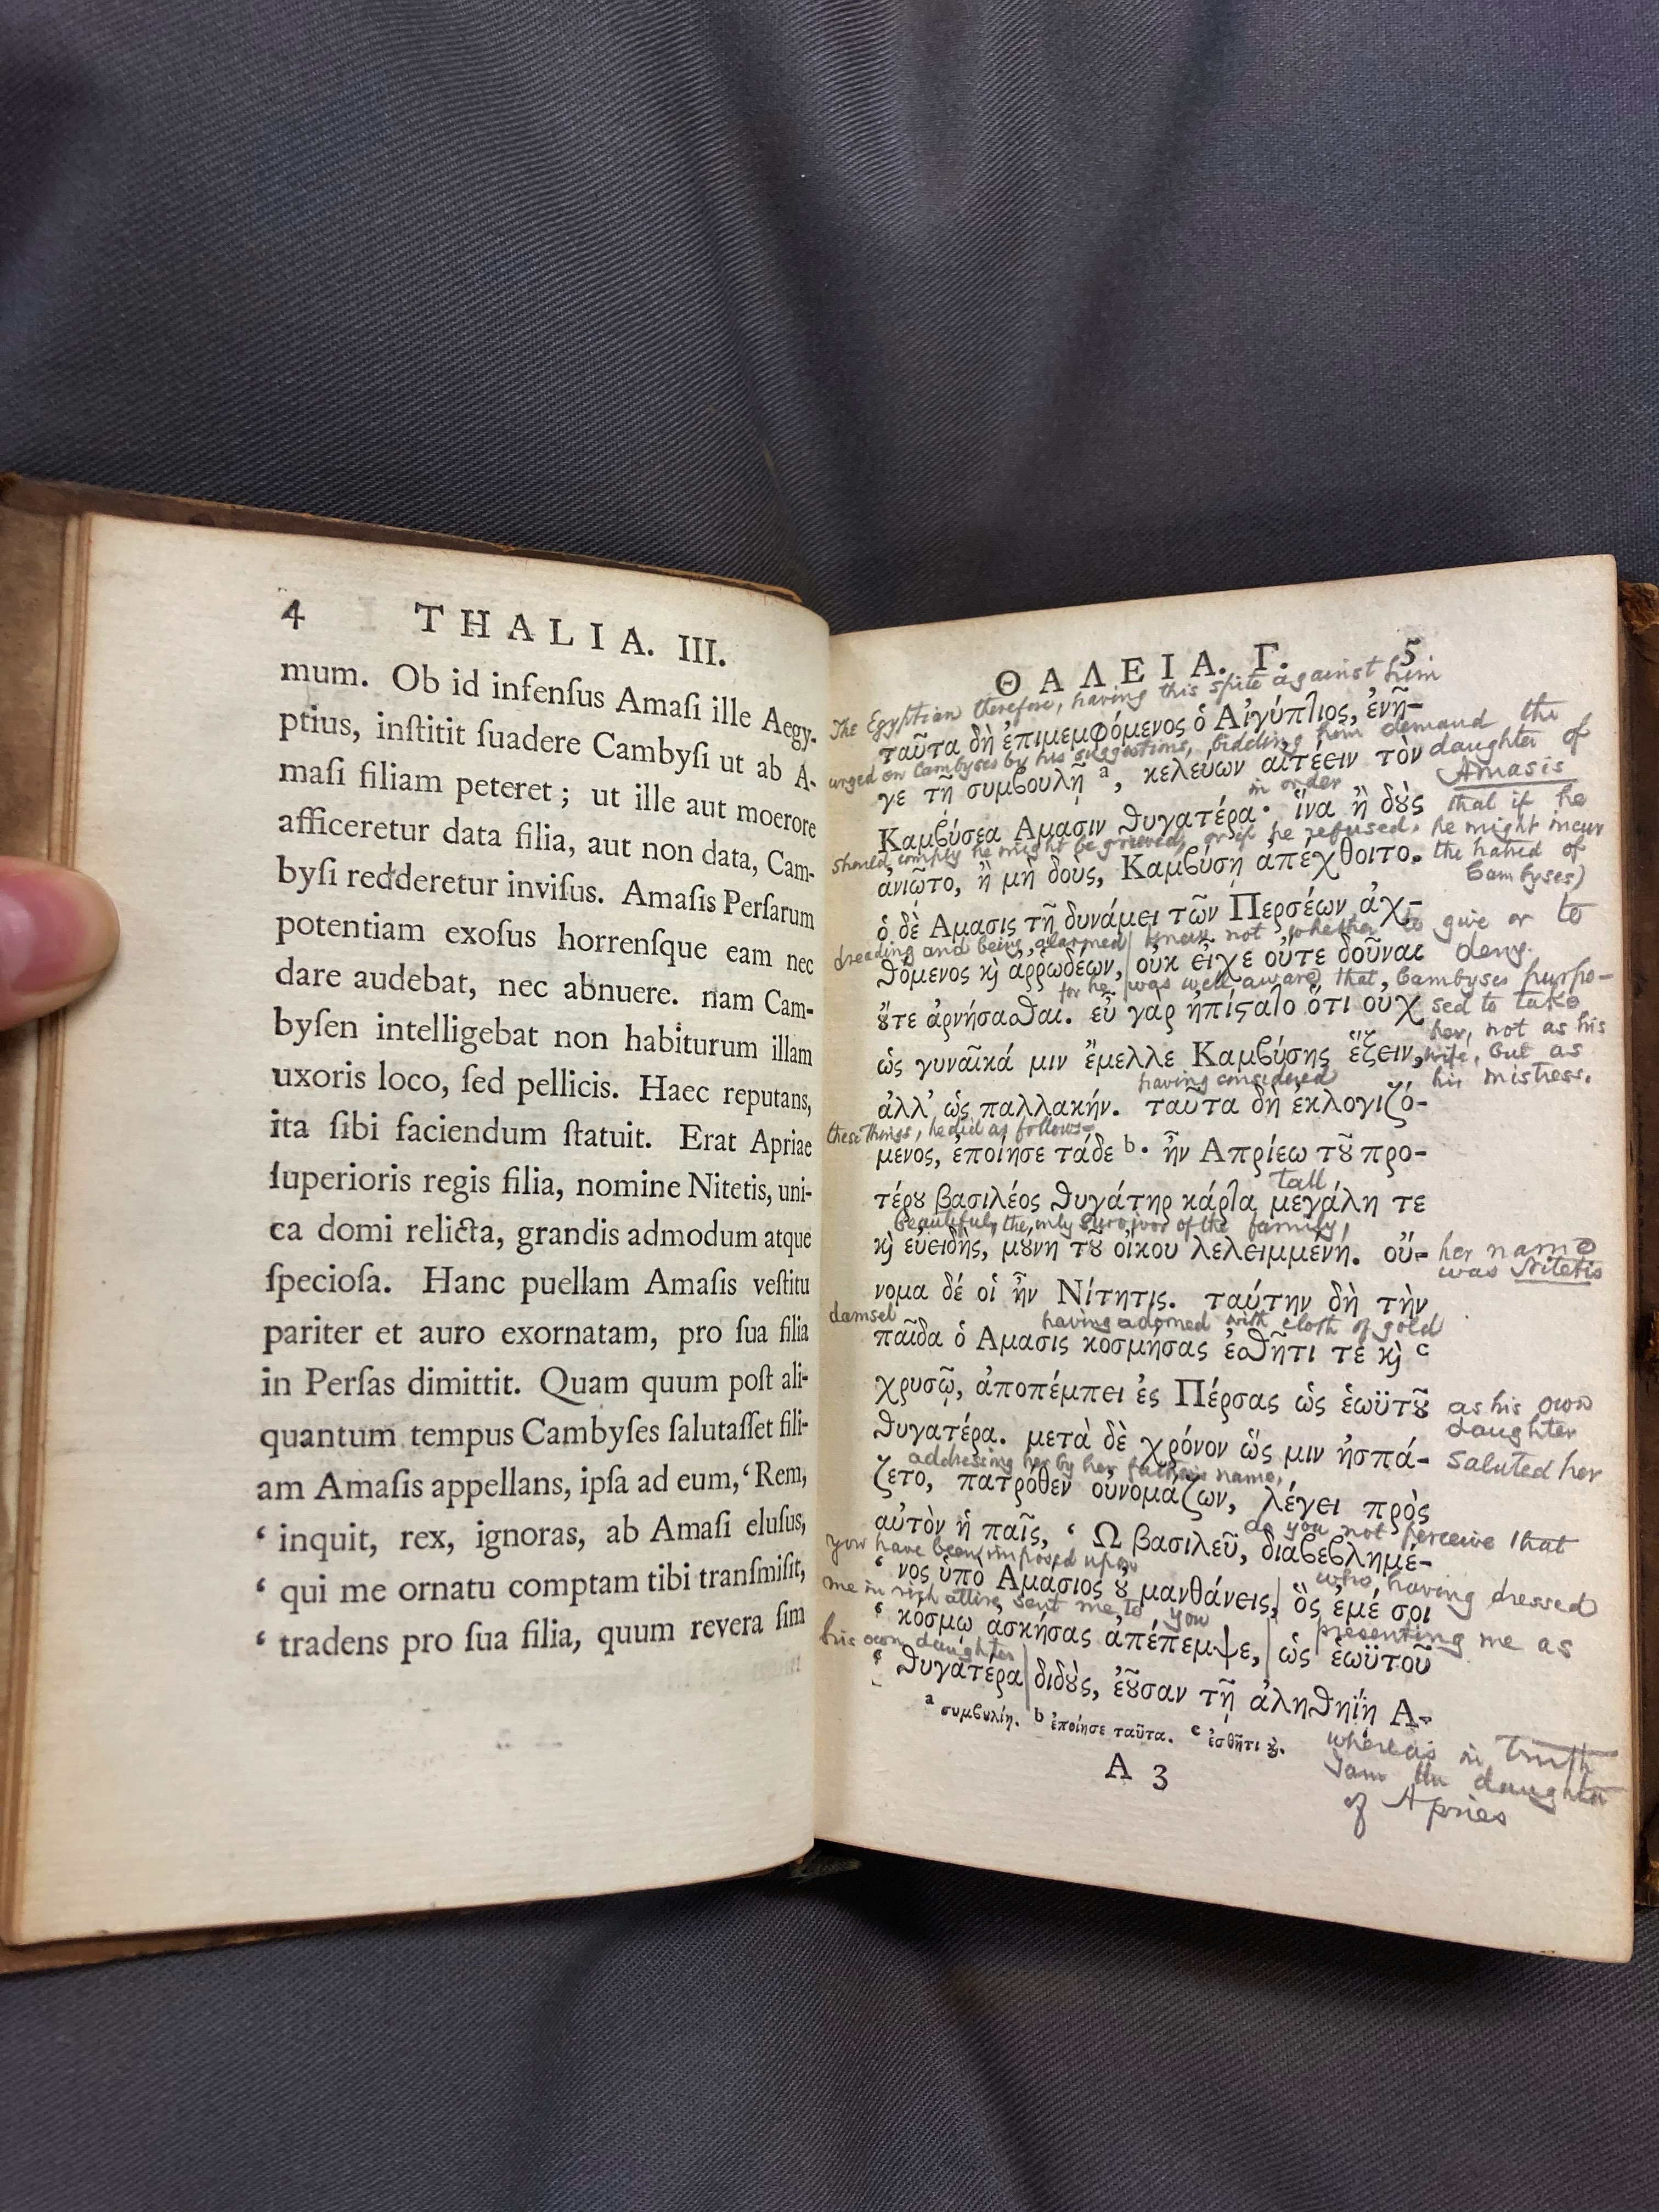 4 THALIA. III.
mum. Ob id infenſus Amaſi ille Aegy-
ptius, inſtitit ſuadere Cambyſi ut ab A-
maſi filiam peteret; ut ille aut moerore
afficeretur data filia, aut non data, Cam-
byſi redderetur inviſus. Amaſis Perſarum
potentiam exoſus horrenſque eam nec
dare audebat, nec abnuere. nam Cam-
byſen intelligebat non habiturum illam
uxoris loco, ſed pellicis. Haec reputans,
ita ſibi faciendum ſtatuit. Erat Apriae
ſuperioris regis filia, nomine Nitetis, uni-
ca domi relicta, grandis admodum atque
ſpecioſa. Hanc puellam Amaſis veſtitu
pariter et auro exornatam, pro ſua filia
in Perſas dimittit. Quam quum poſt ali-
quantum tempus Cambyſes ſalutaſſet fili-
am Amaſis appellans, ipſa ad eum, ‘ Rem,
‘ inquit, rex, ignoras, ab Amaſi eluſus,
‘ qui me ornatu comptam tibi tranſmiſit,
‘ tradens pro ſua filia, quum revera ſim
ΘΑΛΕΙΑ. Γ. 5
The Egyptian therefore, having this spite against him
ταῦτα δὴ ἐπιμεμφόμενος ὁ Αἰγύπτιος, ἐνῆ-
urged on Cambyses by his suggestions, bidding him demand the
γε τῇ συμβουλῇ a, κελεύων αἰτέειν τὸν
daughter of
Amasis
in order
Καμβύσεα Αμασιν θυγατέρα· ἵνα ἢ δȣ̀ς
that if he
should comply he might be grieved, or if he refused, he might incur
ἀνιῷτο, ἢ μὴ δοὺς, Καμβύσῃ ἀπέχθοιτο.
the hatred of
Cambyses)
ὁ δὲ Αμασις τῇ δυνάμει τῶν Περσέων ἀχ-
dreading and being alarmed knew not whether to give or to
θόμενος ϗ̀ ἀῤῥωδέων, οὐκ εἶχε οὔτε δοῦναι
deny.
for he was well aware that, Cambyses purpo-
ȣ̓́τε ἀρνήσασθαι. εὖ γὰρ ἠπίϛατο ὅτι οὐχ
sed to take
her, not as his
ὡς γυναῖκά μιν ἔμελλε Καμβύσης ἕξειν,
wife, but as
having considered
his mistress.
ἀλλ’ ὡς παλλακήν. ταῦτα δὴ ἐκλογιζό-
these things, he did as follows-
μενος, ἐποίησε τάδε b· ἦν Απρίεω τȣ͂ προ-
tall
τέρȣ βασιλέος θυγάτηρ κάρτα μεγάλη τε
beautiful, the only survivor of the family,
ϗ̀ εὐειδὴς, μȣ́νη τȣ͂ οἴκου λελειμμένη. οὔ-
her name
was Nitetis
νομα δέ οἱ ἦν Νίτητις. ταύτην δὴ τὴν
damsel having adorned with cloth of gold
παῖδα ὁ Αμασις κοσμήσας ἐσθῆτι τε ϗ̀ c
χρυσῷ, ἀποπέμπει ἐς Πέρσας ὡς ἑωϋτȣ͂
as his own
daughter
θυγατέρα. μετὰ δὲ χρόνον ὥς μιν ἠσπά-
saluted her
addressing her by her father's name,
ζετο, πατρόθεν οὐνομάζων, λέγει πρὸς
αὐτὸν ἡ παῖς, ‘ Ω βασιλεῦ, διαβεβλημέ-
do you not perceive that
you have been imposed upon
‘ νος ὑπὸ Αμάσιος ȣ̓ μανθάνεις, ὃς ἐμέ σοι
who, having dressed
me in rich attire, sent me to you
‘ κόσμῳ ἀσκήσας ἀπέπεμψε, ὡς ἑωϋτοῦ
presenting me as
his own daughter
‘ θυγατέρα διδȣ̀ς, ἐȣ͂σαν τῇ ἀληθηΐῃ Α-
a συμβȣλίῃ. b ἐποίησε ταῦτα. c ἐσθῆτι ϗ̀.
whereas in truth
I am the daughter
of Apries
A 3